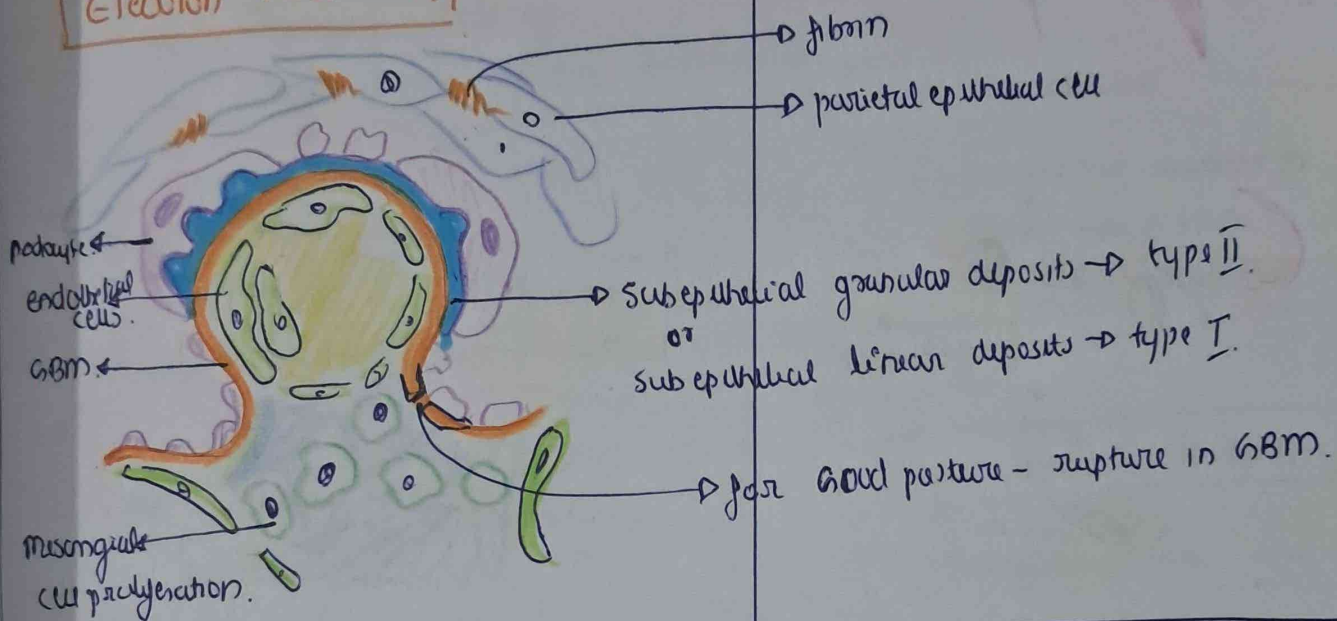 Electron
fibrin
parietal epithelial cell
podocyte
endothelial
cells.
GBM
subepithelial granular deposits → type II.
or
subepithelial linear deposits → type I.
for Good pasture - rupture in GBM.
mesangial
cell proliferation.